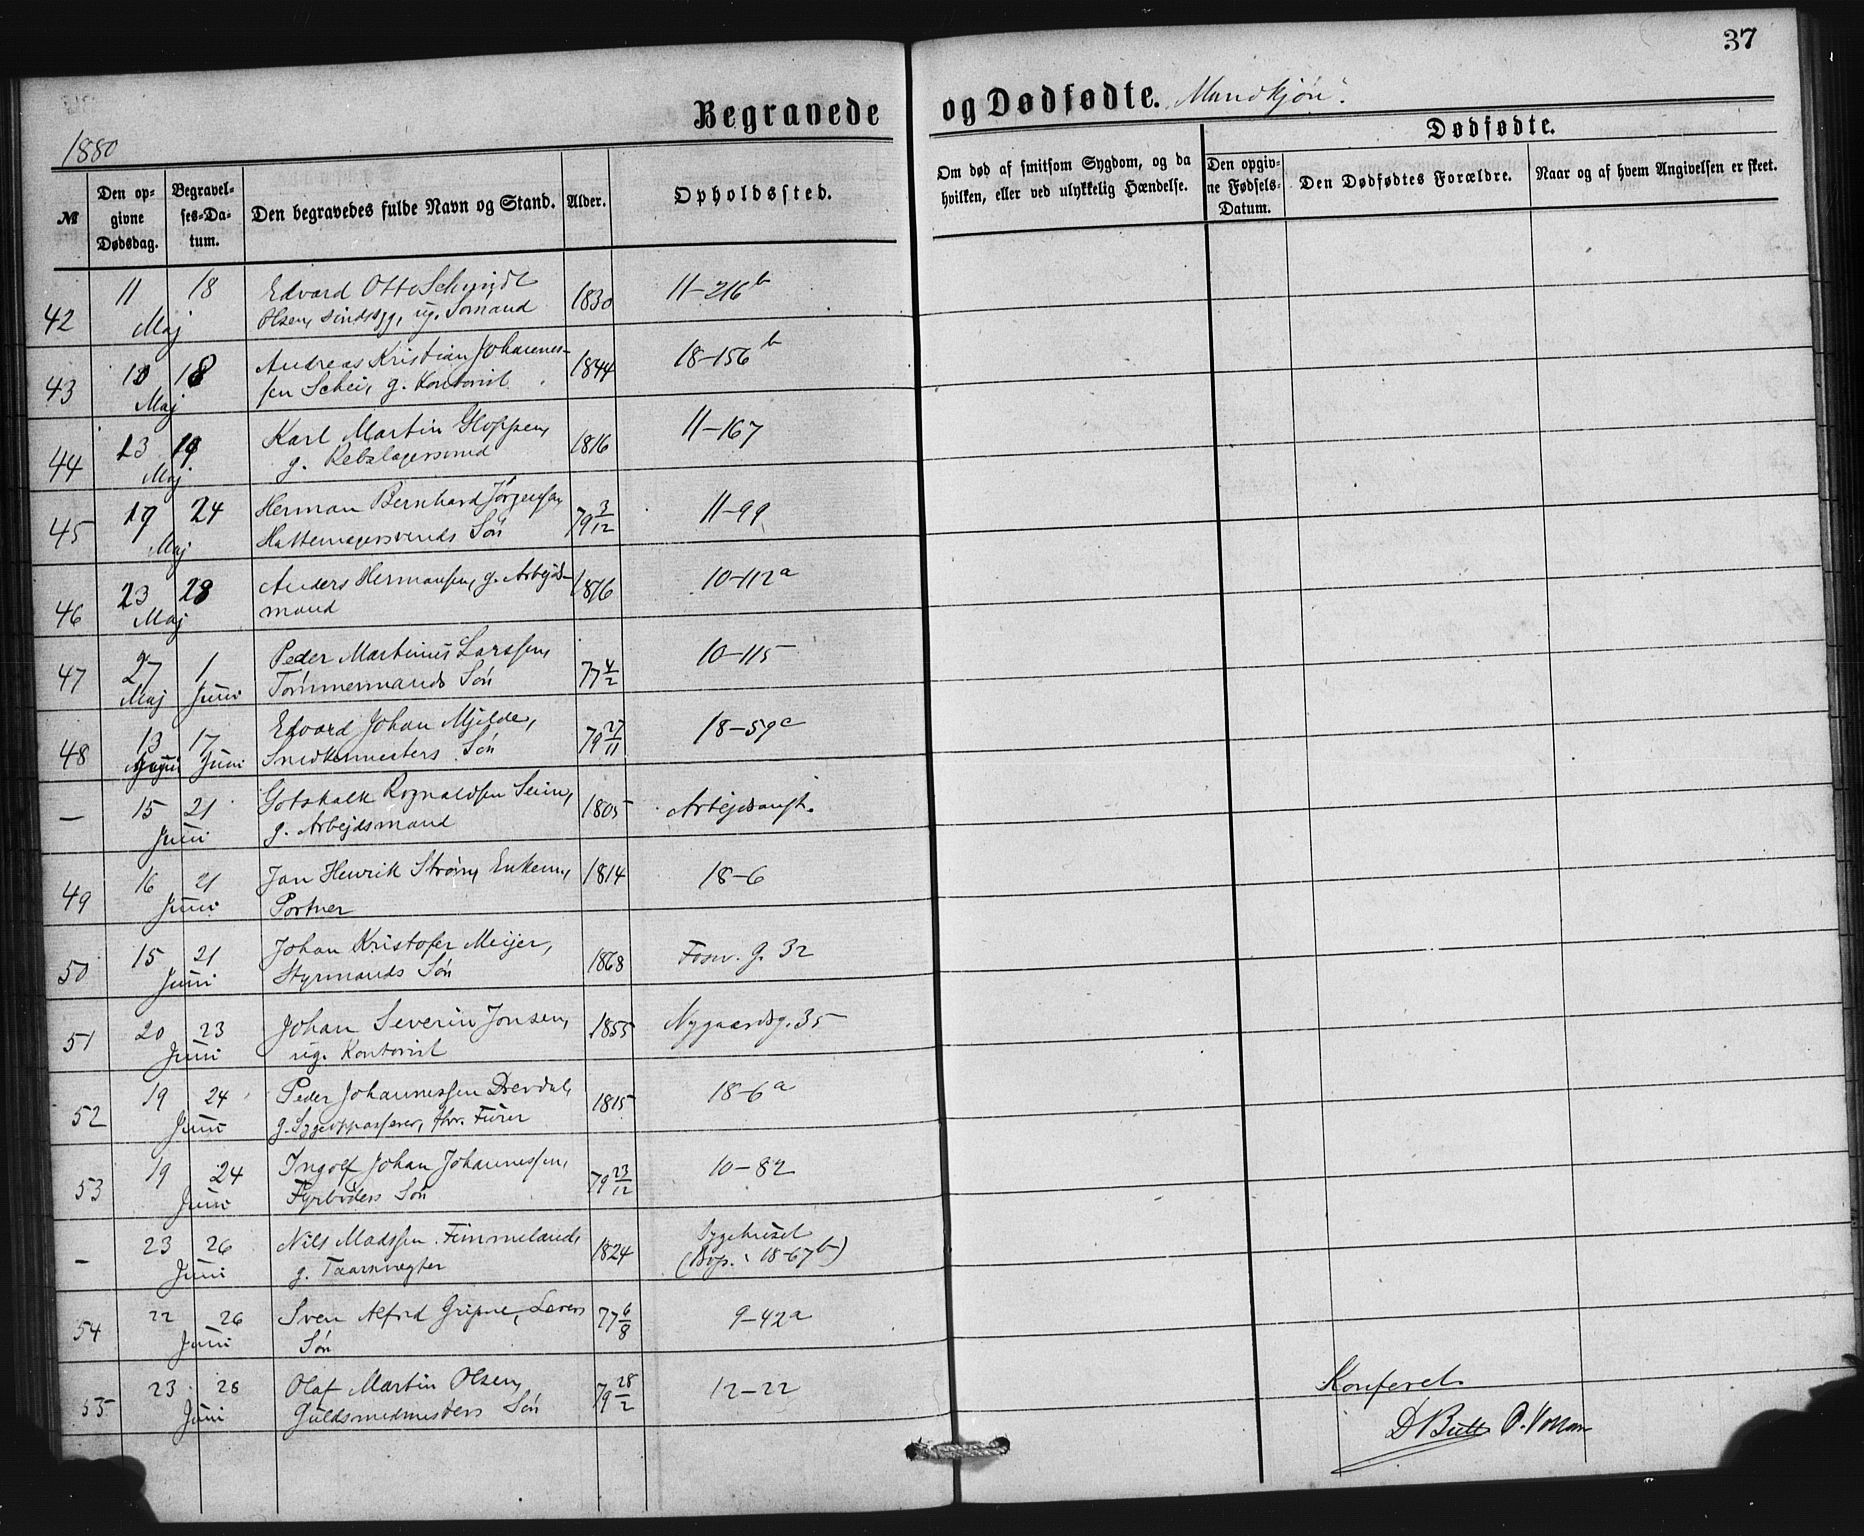 37
Begravede og Dødfødte. Mandkjøn.
1880
№
Den opgivne Dødsdag.
Begravelses-Datum.
Den begravedes fulde Navn og Stand.
Alder.
Opholdssted.
Om død af smitsom Sygdom, og da hvilken, eller ved ulykkelig Hændelse.
Dødfødte.
Den opgivne Fødsels-Datum.
Den Dødfødtes Forældre.
Naar og af hvem Angivelsen er skeet.
42 11 18 Maj Edvard Otto Schmidt 1830 11-216b
Olsen, sindssyg, ug. Sømand
43 10 18 Maj Andreas Kristian Johannes- 1844 18-156b
sen Schei, g. Kontorist
44 13 19 Maj Karl Martin Gloppen, 1816 11-167
g. Rebslagersvend
45 19 24 Maj Herman Bernhard Jørgensen, 79 3/12 11-99
Hattemagersvends Søn
46 23 28 Maj Anders Hermansen, g. Arbejds- 1816 10-112a
mand
47 27 Maj 1 Juni Peder Martinus Larssen, 77 4/2 10-115
Tømmermands Søn
48 13 Juni 17 Juni Edvard Johan Mjelde, 79 27/11 18-59a
Snedkermesters Søn
— 15 21 Juni Gotskalk Rognaldsen Seim, 1805 Arbejdsanst.
g. Arbejdsmand
49 16 21 Juni Jan Henrik Strøm, Enkem., 1814 18-6
Portner
50 15 21 Juni Johan Kristofer Meijer, 1868 Fosw. g. 32
Styrmands Søn
51 20 23 Juni Johan Severin Jonsen, 1855 Nygaardsg. 35
ug. Kontorist
52 19 24 Juni Peder Johannessen Drevdal, 1815 18-6a
g. Sygeopasser, fhv. Furer
53 19 24 Juni Ingolf Johan Johannessen, 79 23/12 10-82
Fyrbøders Søn
— 23 26 Juni Nils Madssen Fimmeland, 1824 Sygehuset
g. Taarnvægter (Bop. 18-67b)
54 22 26 Juni Sven Alfred Gripne, 77 6/8 9-42a
Søn
55 23 28 Juni Olaf Martin Olsen, 79 28/2 12-22
Guldsmedmesters Søn
Konfereret
D Bull